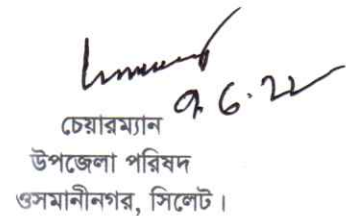 ৭.৬.২২
চেয়ারম্যান
উপজেলা পরিষদ
ওসমানীনগর, সিলেট।